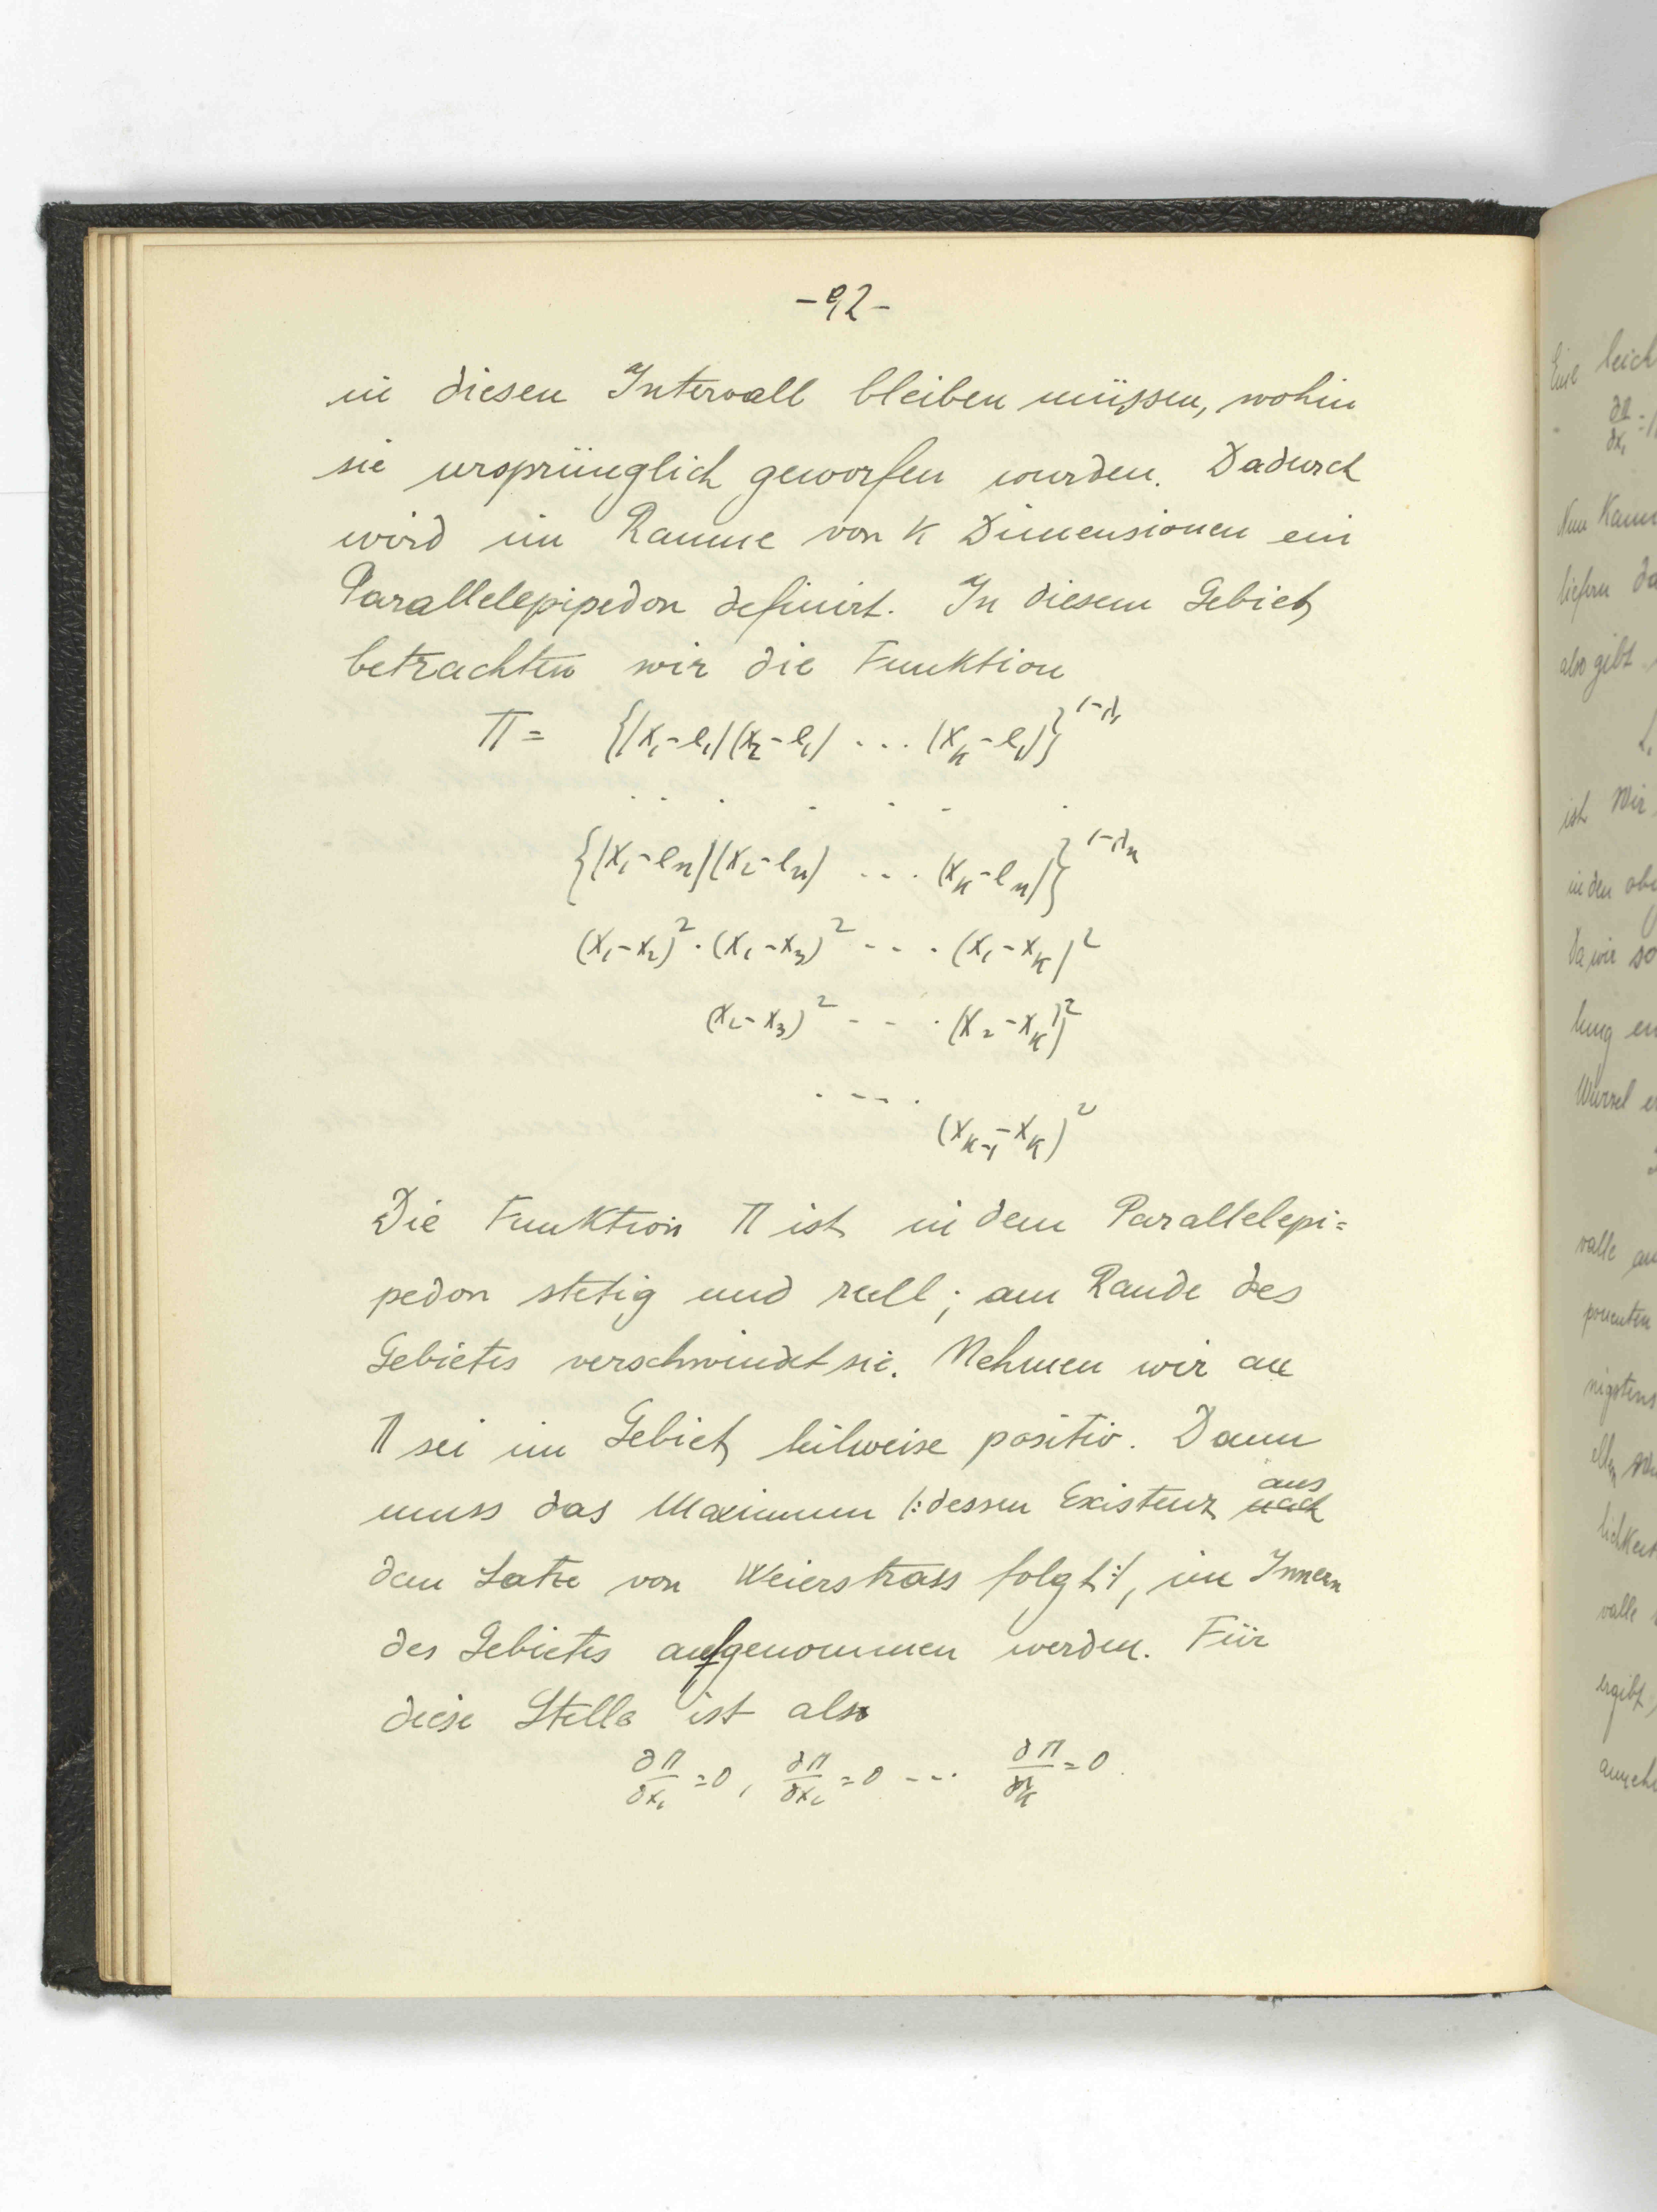 -92-
in diesen Intervall bleiben müssen, wohin
sie ursprünglich geworfen wurden. Dadurch
wird im Raume von K Dimensionen ein
Parallelepipedon definirt. In diesem Gebiet
betrachten wir die Funktion
Π = {(x₁-e₁)(x₂-e₁) ... (x_k-e₁)}^{1-λ₁}
. . . . . . .
{(x₁-e_n)(x₂-e_n) ... (x_k-e_n)}^{1-λ_n}
(x₁-x₂)²·(x₁-x₃)² --- ·(x₁-x_k)²
(x₂-x₃)² -- ·(x₂-x_k)²
. --- .
(x_{k-1}-x_k)²
Die Funktion Π ist in dem Parallelepi=
pedon stetig und reell; am Rande des
Gebietes verschwindet sie. Nehmen wir an
Π sei im Gebiet teilweise positiv. Dann
aus
muss das Maximum /:dessen Existenz nach
dem Satze von Weierstrass folgt:/, im Innern
des Gebietes aufgenommen werden. Für
diese Stelle ist also
∂Π/∂x₁ =0, ∂Π/∂x₂ =0 --- ∂Π/∂x_k =0.
Eine leich
∂Π/∂x₁ =
Nun kann
liefern da
also gibt
ist Wir
in den obe
Da wir so
lung en
Wurzel e
valle an
ponenten
nigstens
lichkeit
valle
ergibt,